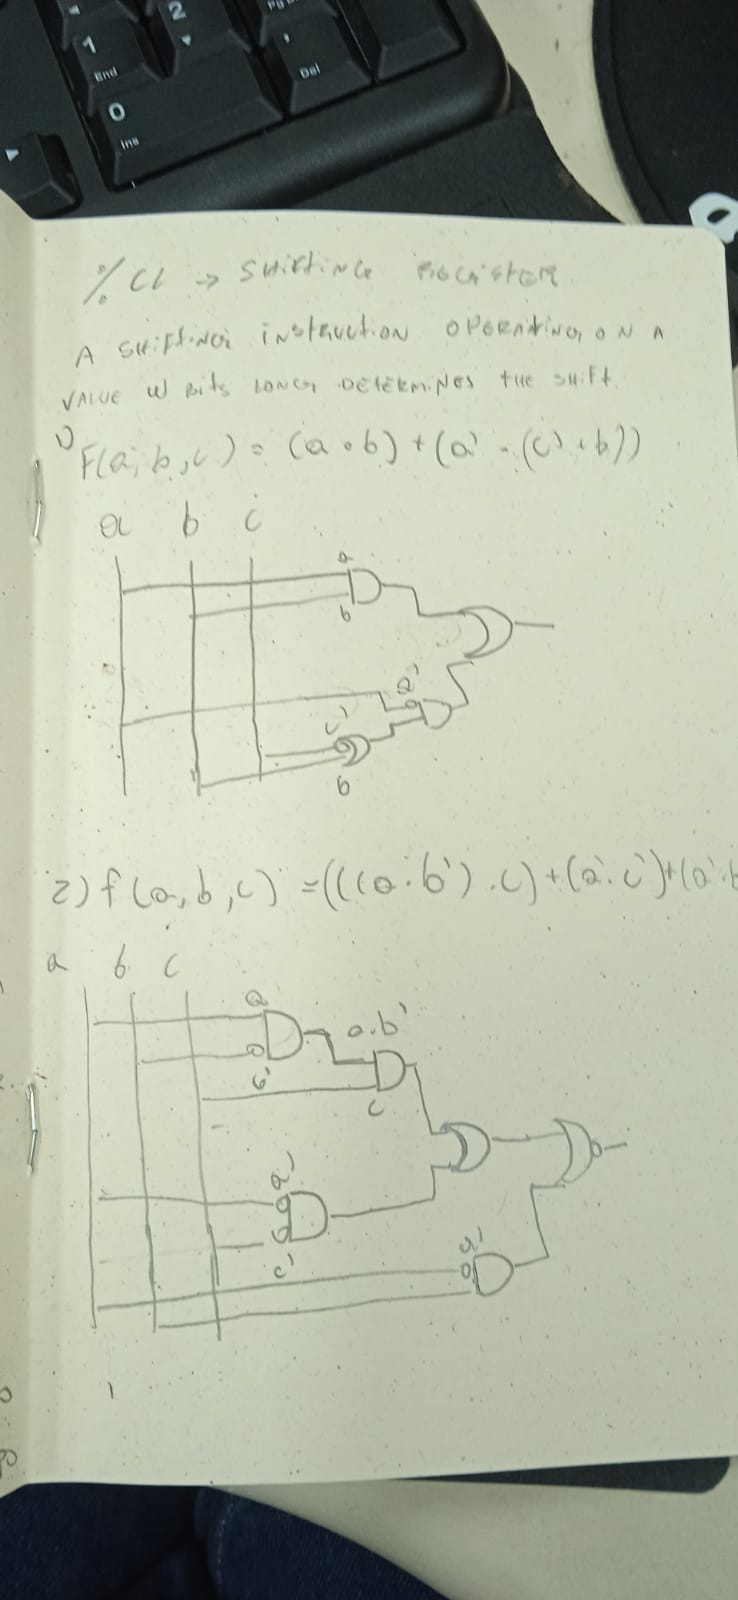 1
End
2
0
Ins
Del
%CL → SHIFTING REGISTER
A SHIFTING INSTRUCTION OPERATING ON A
VALUE W BITS LONG DETERMINES THE SHIFT.
1) F(a, b, c) = (a · b) + (a' · (c' + b))
a b c
a
b
a'
c'
b
2) f(a, b, c) = (((a · b') · c) + (a' · c') + (a' · b
a b c
a
a.b'
c
a'
c'
a'